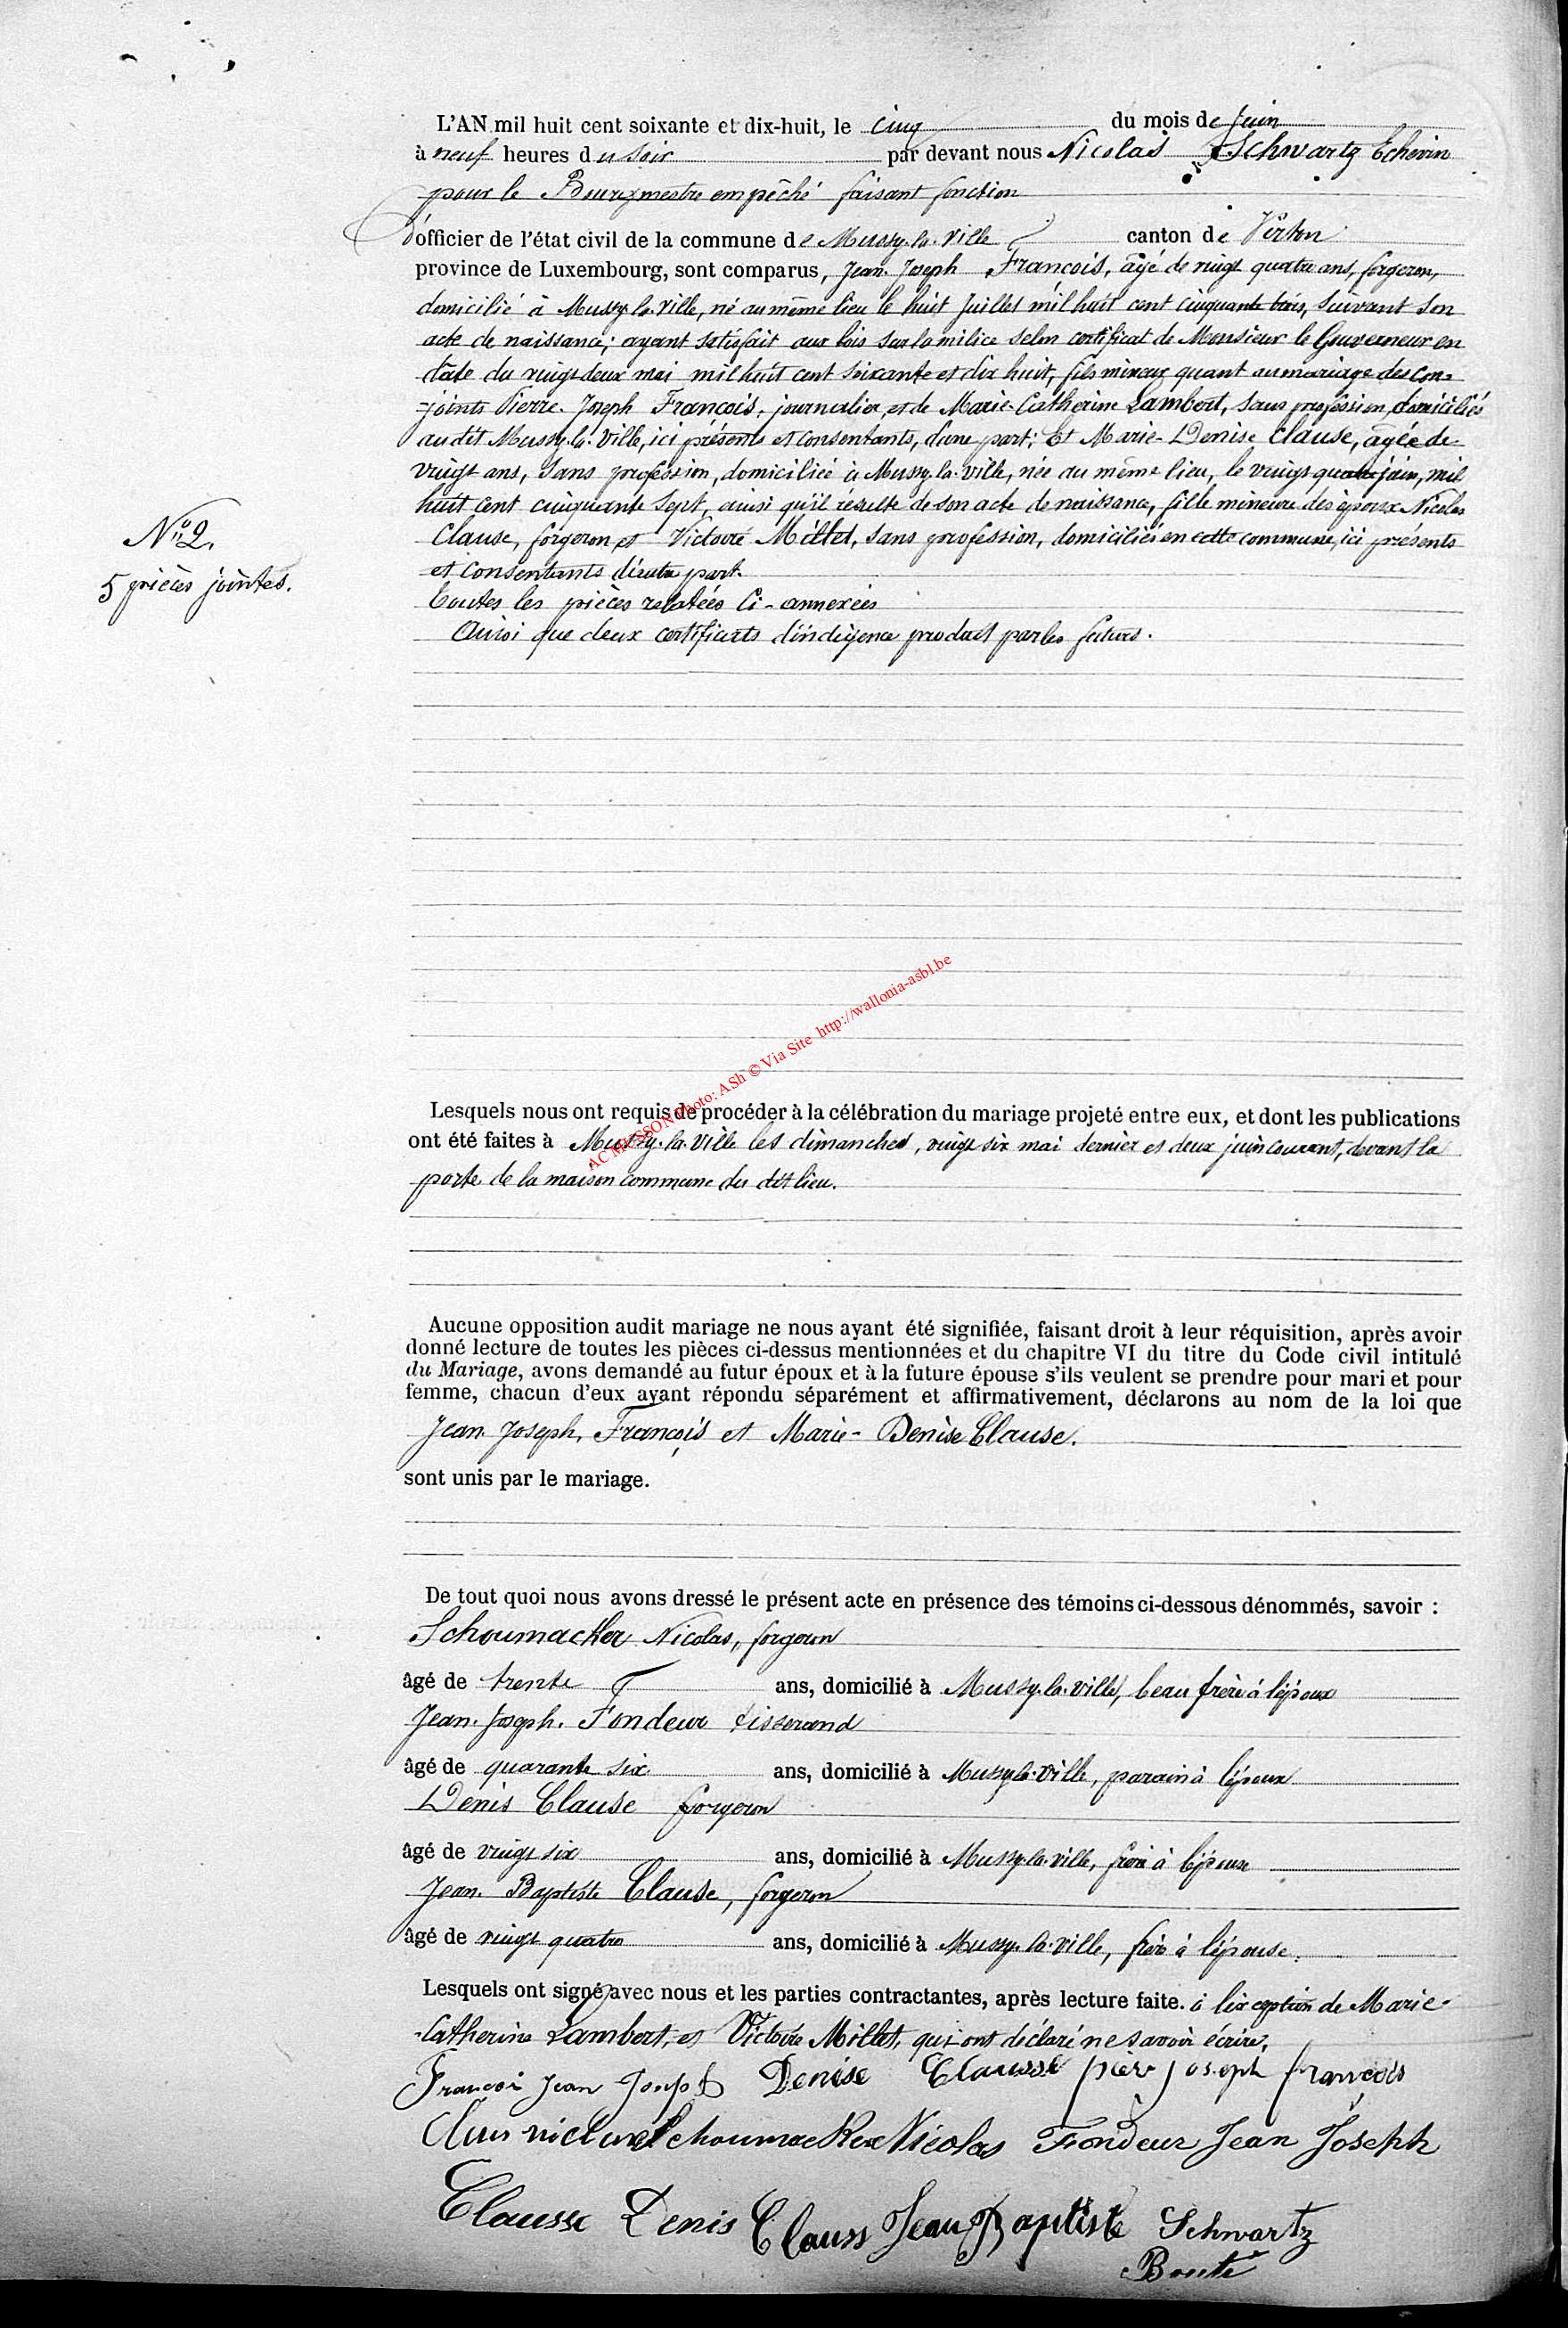 L'AN mil huit cent soixante et dix-huit, le cinq du mois de Juin
à neuf heures du soir par devant nous Nicolas Schwartz Echevin
pour le Bourgmestre empêché faisant fonction
d'officier de l'état civil de la commune de Mussy-la-Ville canton de Virton
province de Luxembourg, sont comparus, Jean-Joseph François, âgé de vingt quatre ans, forgeron,
domicilié à Mussy-la-Ville, né au même lieu le huit Juillet mil huit cent cinquante trois, suivant son
acte de naissance; ayant satisfait aux lois sur la milice selon certificat de Monsieur le Gouverneur en
date du vingt deux mai mil huit cent soixante et dix huit, fils mineur quant au mariage des con-
-joints Pierre-Joseph François, journalier, et de Marie-Catherine Lambert, sans profession, domiciliés
au dit Mussy-la-Ville, ici présents et consentants, d'une part; Et Marie-Denise Clause, âgée de
vingt ans, sans profession, domiciliée à Mussy-la-Ville, née au même lieu, le vingt quatre juin, mil
huit cent cinquante sept, ainsi qu'il résulte de son acte de naissance, fille mineure des époux Nicolas
Clause, forgeron et Victoire Millet, sans profession, domiciliés en cette commune, ici présents
et consentants d'autre part.
N° 2.
5 pièces jointes.
Toutes les pièces relatées ci-annexées
Ainsi que deux certificats d'indigence produit par les futurs.
AC MUSSON Photo: ASh © Via Site http://wallonia-asbl.be
Lesquels nous ont requis de procéder à la célébration du mariage projeté entre eux, et dont les publications
ont été faites à Mussy-la-Ville les dimanches, vingt six mai dernier et deux juin courant, devant la
porte de la maison commune du dit lieu.
Aucune opposition audit mariage ne nous ayant été signifiée, faisant droit à leur réquisition, après avoir
donné lecture de toutes les pièces ci-dessus mentionnées et du chapitre VI du titre du Code civil intitulé
du Mariage, avons demandé au futur époux et à la future épouse s'ils veulent se prendre pour mari et pour
femme, chacun d'eux ayant répondu séparément et affirmativement, déclarons au nom de la loi que
Jean-Joseph, François et Marie-Denise Clause.
sont unis par le mariage.
De tout quoi nous avons dressé le présent acte en présence des témoins ci-dessous dénommés, savoir :
Schoumacker Nicolas, forgeron
âgé de trente ans, domicilié à Mussy-la-Ville, beau frère à l'époux
Jean-Joseph. Fondeur tisserand
âgé de quarante six ans, domicilié à Mussy-la-Ville, parain à l'époux
Denis Clause forgeron
âgé de vingt six ans, domicilié à Mussy-la-Ville, frère à l'épouse
Jean-Baptiste Clause, forgeron
âgé de vingt quatre ans, domicilié à Mussy-la-Ville, frère à l'épouse.
Lesquels ont signé avec nous et les parties contractantes, après lecture faite. à l'exception de Marie-
-Catherine Lambert, et Victoire Millet, qui ont déclaré ne savoir écrire.
François Jean Joseph Denise Clausse pier joseph françois
Schoumacker Nicolas Fondeur Jean Joseph
Clausse Denis Clauss Jean Baptiste Schwartz
Bonté